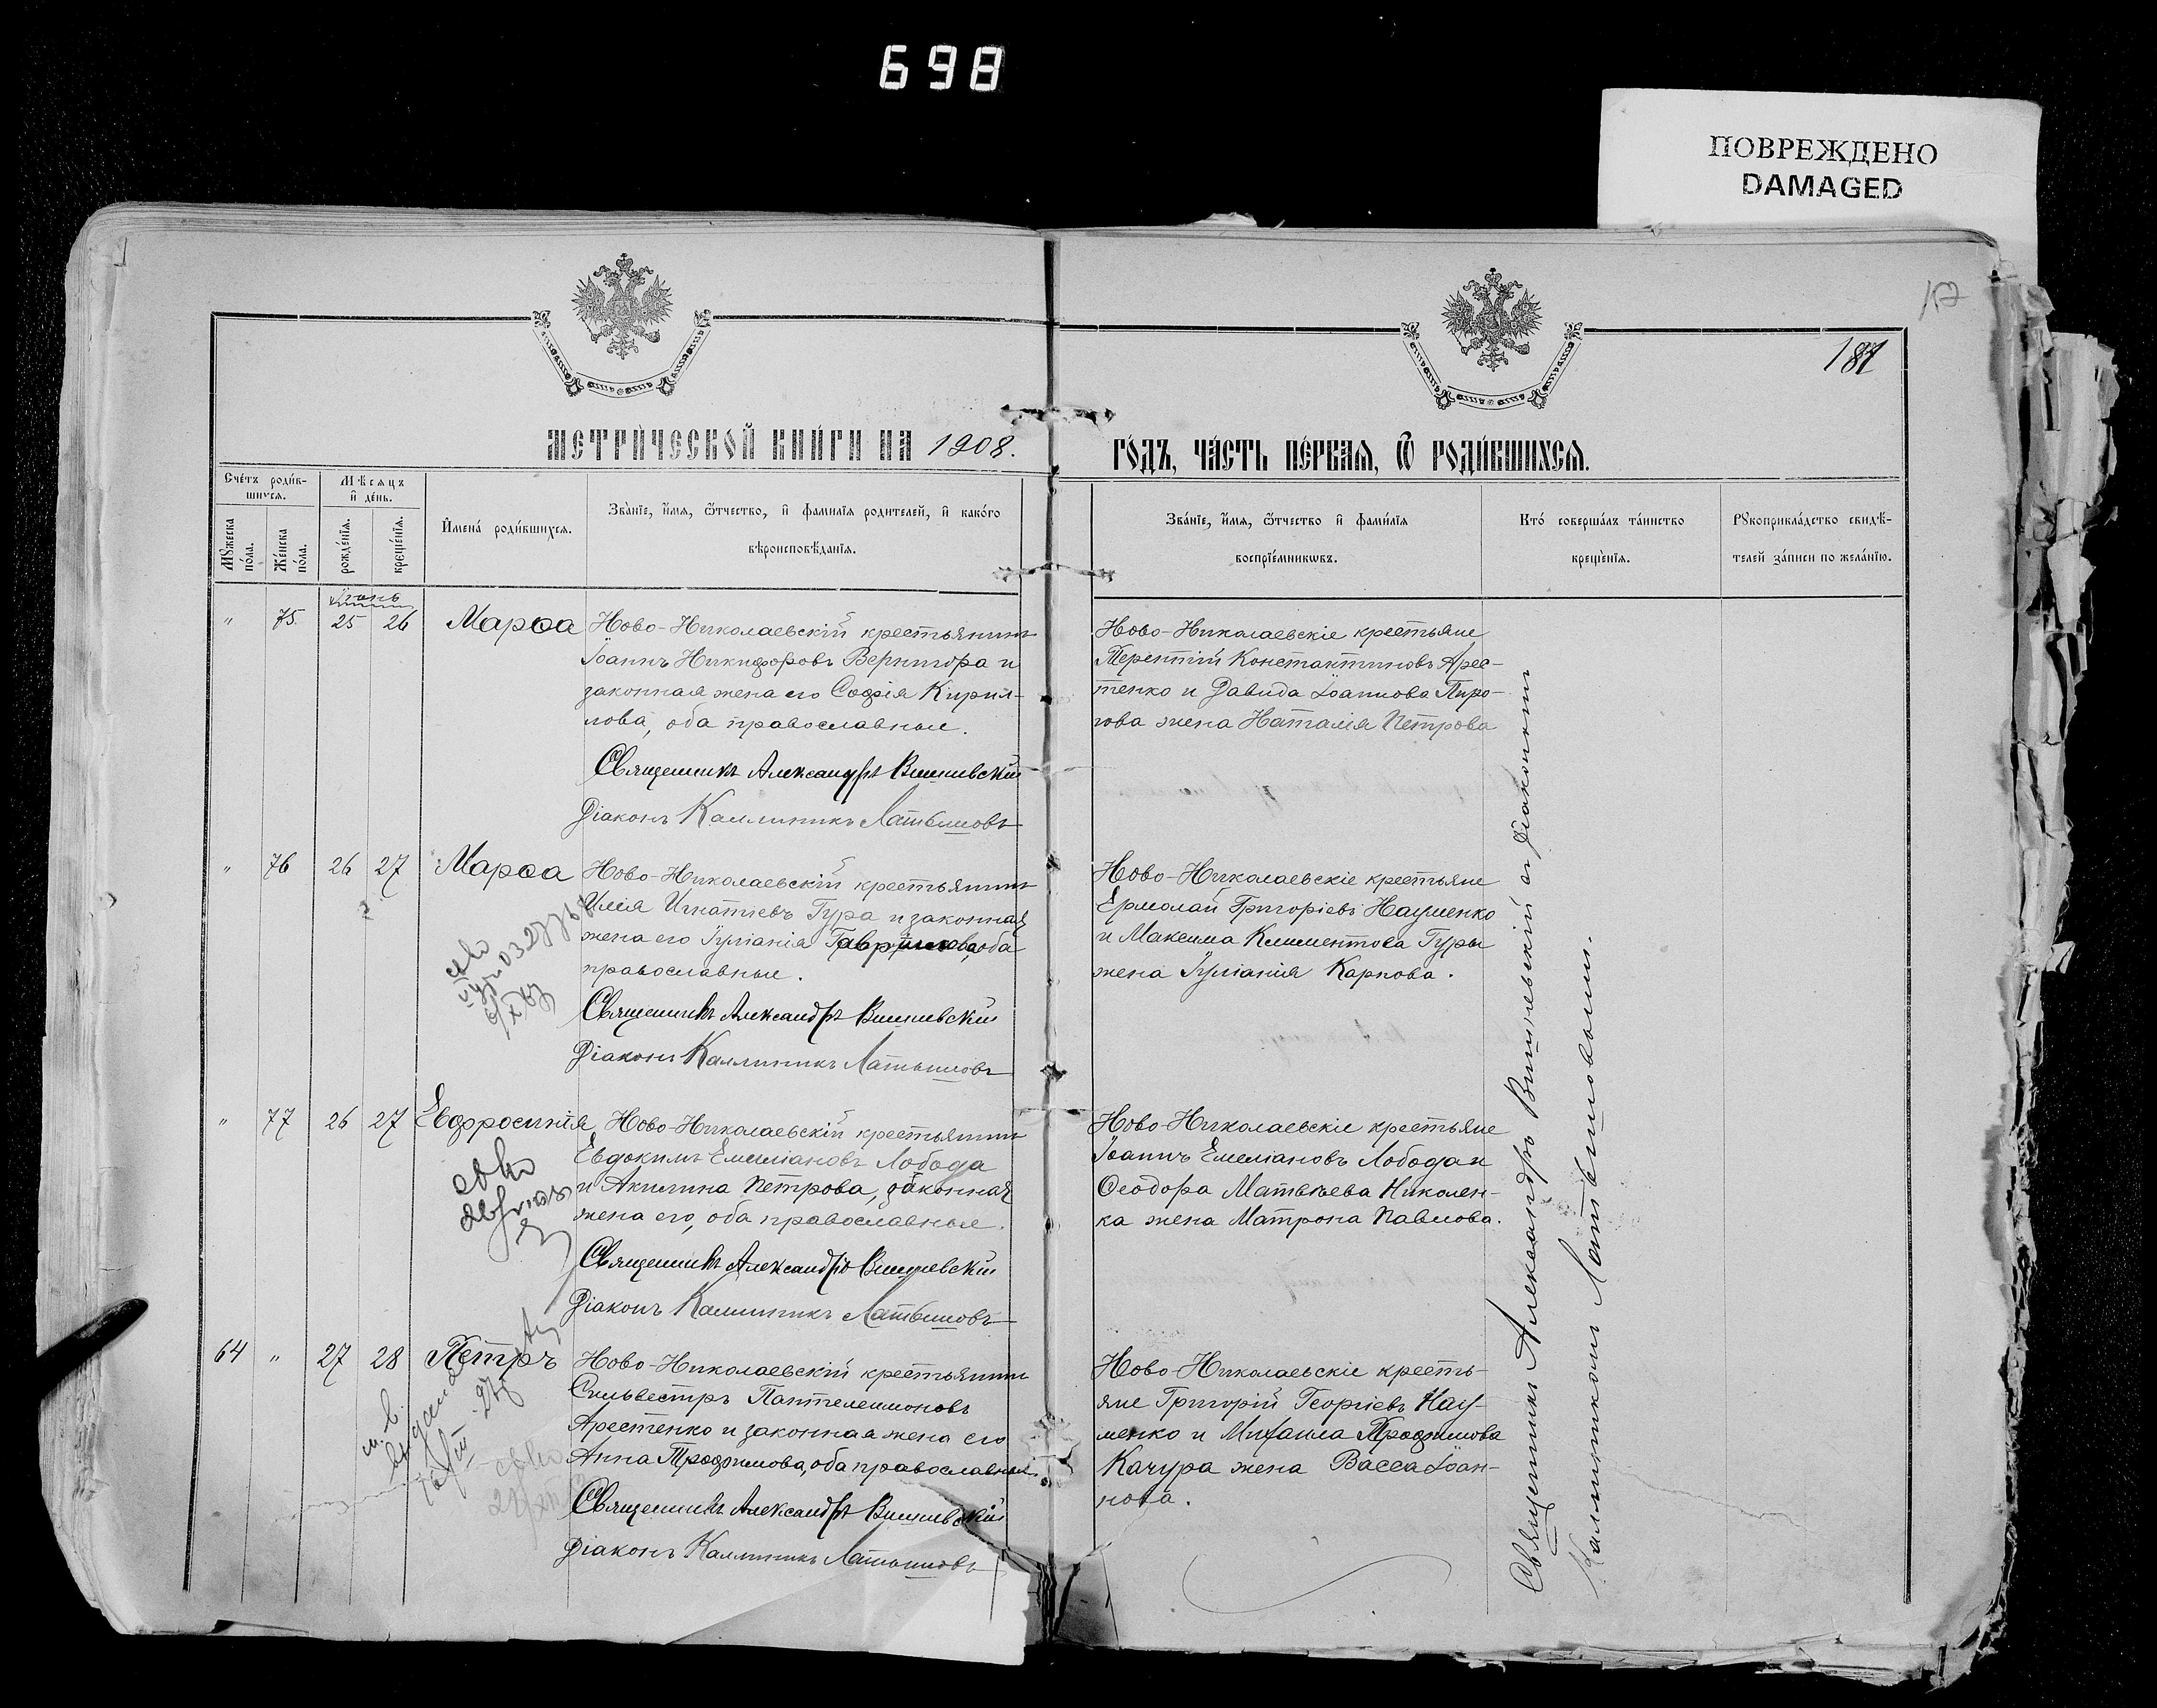 698
ПОВРЕЖДЕНО
DAMAGED
187
МЕТРИ́ЧЕСКОЙ КНИ́ГИ НА 1908.
ГО́ДЪ, ЧА́СТЬ ПЕ́РВАЯ, Ѿ РОДИ́ВШИХСЯ.
Сче́тъ роди́вшихся.
Мꙋжеска по́ла.
Же́нска по́ла.
Мѣсяцъ и҆ де́нь.
рожде́нїя.
креще́нїя.
И҆мена́ роди́вшихся.
Зва́нїе, и҆́мя, ѻ҆́тчество, и҆ фами́лїя родителей, и҆ како́го
вѣроисповѣ́данїя.
Зва́нїе, и҆́мя, ѻ҆́тчество и҆ фами́лїя
воспрїе́мникѡвъ.
Кто́ соверша́лъ та́инство
креще́нїя.
Рꙋкоприкла́дство свидѣ́-
телей за́писи по жела́нїю.
Іюнь
" 75. 25 26 Марѳа
Ново-Николаевскій крестьянинъ
Іоаннъ Никифоровъ Вернигора и
законная жена его Софія Кирил-
лова, оба православные.
Священникъ Александръ Вишневскій
Діаконъ Каллиникъ Латышовъ
Ново-Николаевскіе крестьяне
Терентій Константиновъ Арес-
тенко и Давида Іоаннова Пиро-
гова жена Наталія Петрова
" 76 26 27 Марѳа
Ново-Николаевскій крестьянинъ
Илія Игнатіевъ Гура и законная
жена его Іуліанія Гавриилова, оба
православные.
Священникъ Александръ Вишневскій
Діаконъ Каллиникъ Латышовъ
Ново-Николаевскіе крестьяне
Ермолай Григоріевъ Науменко
и Максима Климентова Гуры
жена Іуліанія Карпова.
" 77 26 27 Евфросинія
Ново-Николаевскій крестьянинъ
Евдокимъ Емиліановъ Лобода
и Акилина Петрова, законная
жена его, оба православные.
Священникъ Александръ Вишневскій
Діаконъ Каллиникъ Латышовъ
Ново-Николаевскіе крестьяне
Іоаннъ Емеліановъ Лобода и
Ѳеодора Матвѣева Николен-
ка жена Матрона Павлова.
64 " 27 28 Петръ
Ново-Николаевскій крестьянинъ
Сильвестръ Пантелеимоновъ
Арестенко и законная жена его
Анна Трофимова, оба православные.
Священникъ Александръ Вишневскій
Діаконъ Каллиникъ Латышовъ
Ново-Николаевскіе кресть-
яне Григорій Георгіевъ Нау-
менко и Михаила Трофимова
Качура жена Васса Іоан-
нова.
Священникъ Александръ Вишневскій съ Діакономъ
Каллиникомъ Латышовымъ.